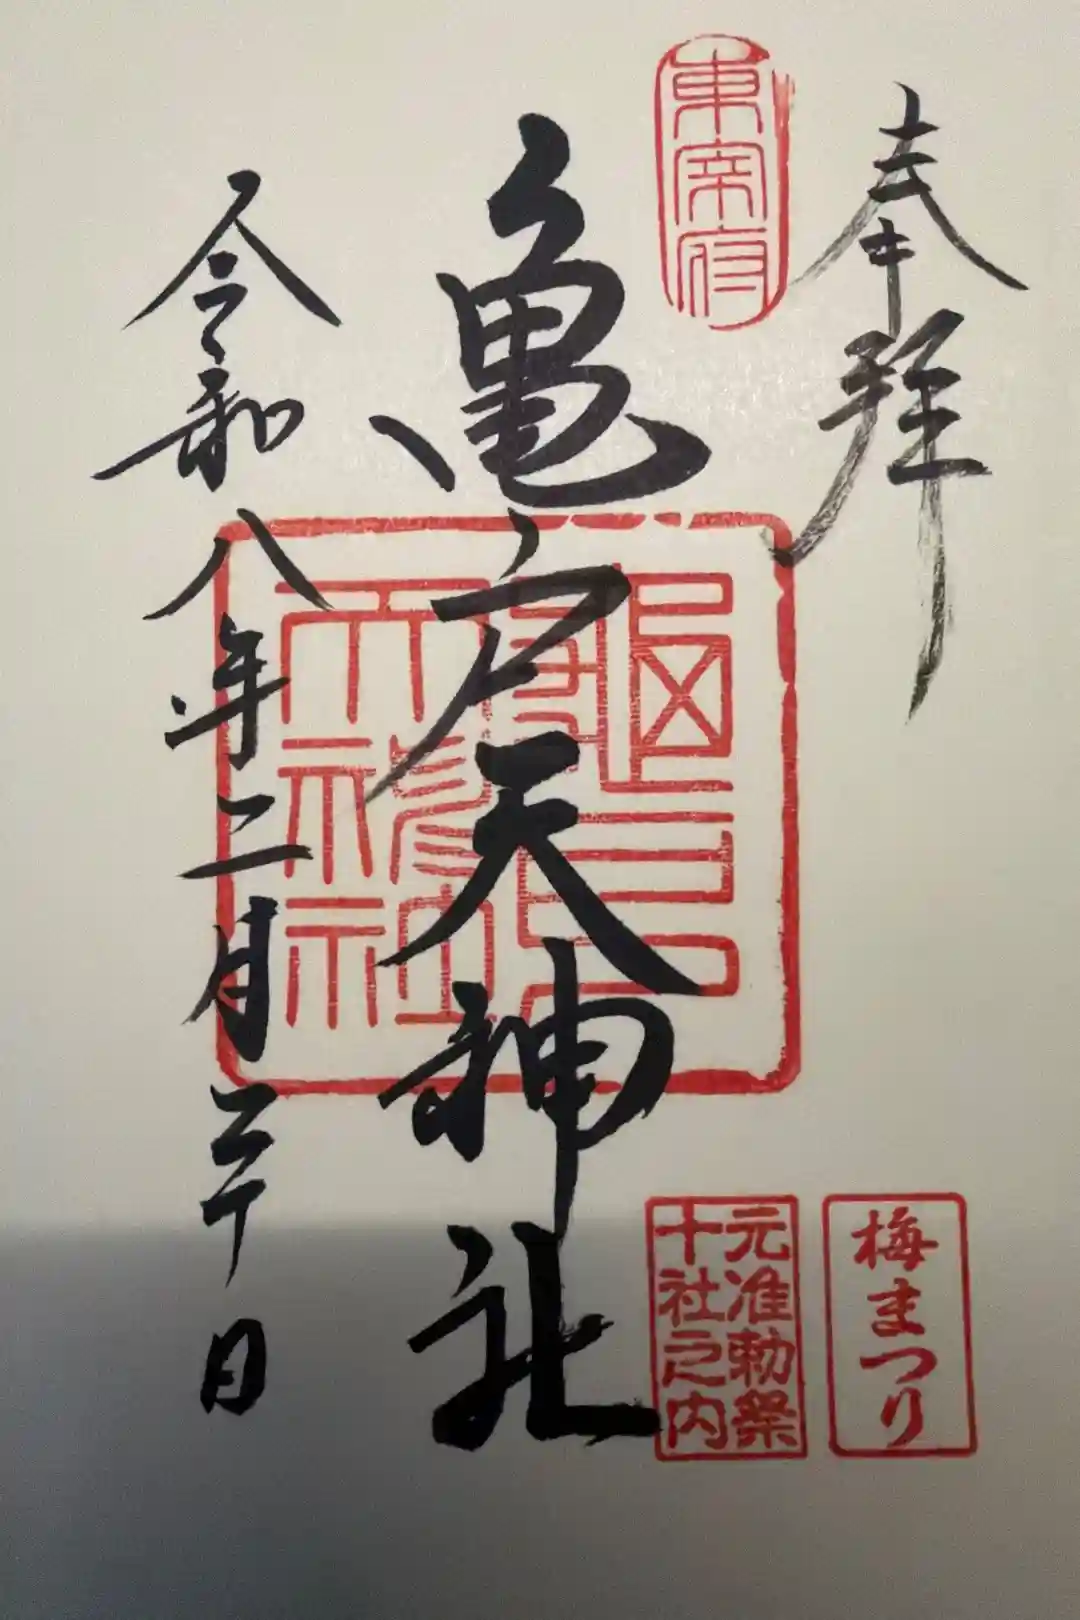 奉拝
東宰府
亀戸天神社
龜戸
天神社
令和八年二月二十日
梅まつり
元准勅祭
十社之内